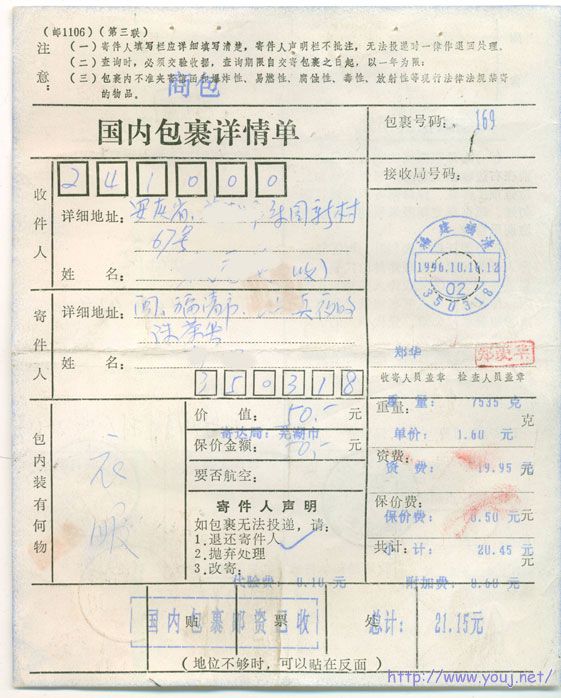 (邮1106)(第三联)
注意:
(一)寄件人填写栏应详细填写清楚，寄件人声明栏不批注，无法投递时一律作退回处理。
(二)查询时，必须交验收据，查询期限自交寄包裹之日起，以一年为限；
(三)包裹内不准夹寄信函和爆炸性、易燃性、腐蚀性、毒性、放射性等现行法律法规禁寄
的物品。
商包
国内包裹详情单
包裹号码: 169
接收局号码:
241000
收件人
详细地址: 安庆省 新村
67号
姓 名: (收)
福建福清
1996.10.16.12
02
寄件人
详细地址: 闽、福清市
姓 名:
350318
郑华
收寄人员盖章 检查人员盖章
包内装有何物
衣服
价 值: 50.- 元
寄达局: 芜湖市
保价金额: 50.- 元
要否航空:
寄件人声明
如包裹无法投递，请:
1.退还寄件人 ✓
2.抛弃处理
3.改寄:
重量: 克
重量: 7535 克
单价: 1.60 元
资费: 元
资费: 19.95 元
保价费: 元
保价费: 0.50 元
共计: 元
小计: 20.45 元
代验费: 0.10 元
附加费: 0.60 元
贴 票 处
国内包裹邮资已收
总计: 21.15元
(地位不够时，可以贴在反面)
http://www.youj.net/